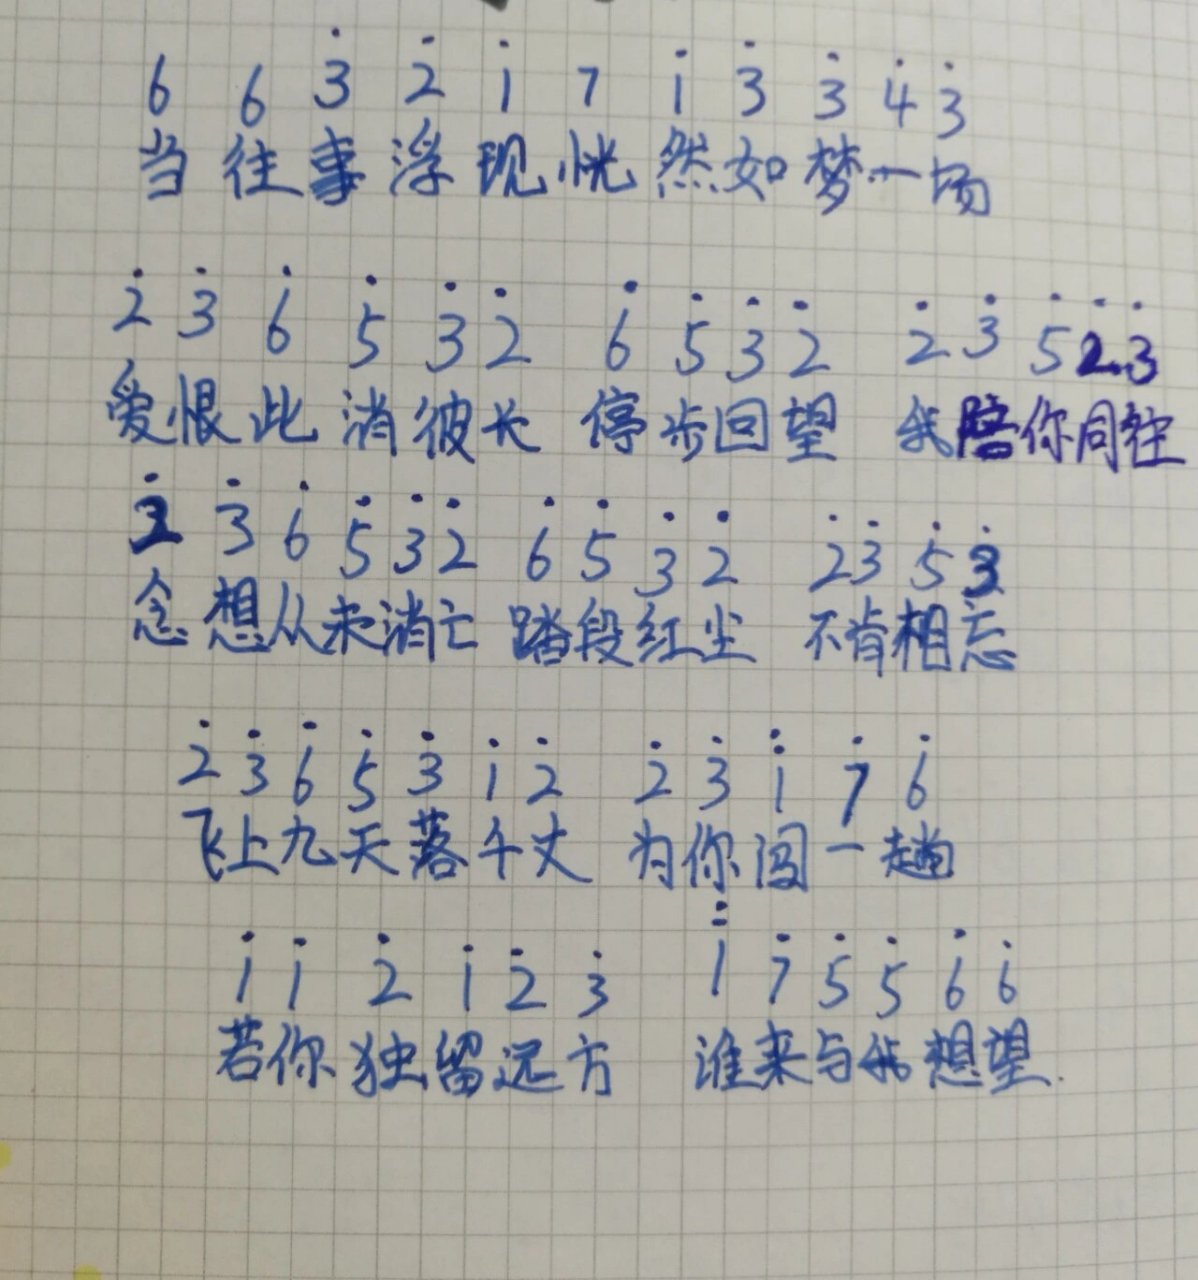 6 6 3̇ 2̇ 1̇ 7 1̇ 3̇ 3̇ 4̇ 3̇
当往事浮现恍然如梦一场
2̇ 3̇ 6̇ 5̇ 3̇ 2̇ 6̇ 5̇ 3̇ 2̇ 2̇ 3̇ 5̇ 2̇ 3̇
爱恨此消彼长 停步回望 我陪你同往
2̇ 3̇ 6̇ 5̇ 3̇ 2̇ 6̇ 5̇ 3̇ 2̇ 2̇ 3̇ 5̇ 3̇
念想从未消亡 踏段红尘 不肯相忘
2̇ 3̇ 6̇ 5̇ 3̇ 1̇ 2̇ 2̇ 3̇ 1̈ 7̇ 6̇
飞上九天落千丈 为你闯一趟
1̇ 1̇ 2̇ 1̇ 2̇ 3̇ 1̈ 7̇ 5̇ 5̇ 6̇ 6̇
若你独留远方 谁来与我想望.